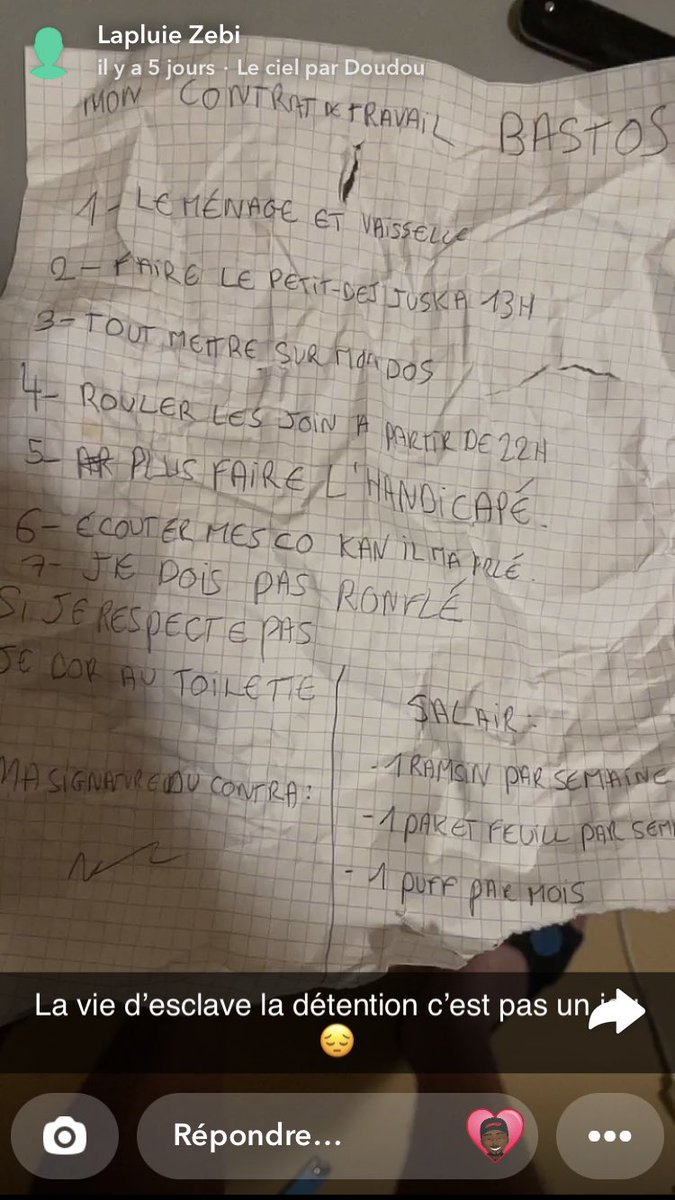 Lapluie Zebi
il y a 5 jours · Le ciel par Doudou
MON CONTRAT DE TRAVAIL BASTOS
1- LE MÉNAGE ET VAISSELLE
2- FAIRE LE PETIT-DEJ JUSKA 13H
3- TOUT METTRE SUR MON DOS
4- ROULER LES JOIN A PARTIR DE 22H
5- PLUS FAIRE L'HANDICAPÉ.
6- ÉCOUTER MES CO KAN IL MA PRLÉ.
7- JE DOIS PAS RONFLÉ
SI JE RESPECTE PAS
JE DOR AU TOILETTE
SALAIR :
- 1 RAMSIN PAR SEMAINE
- 1 PAKET FEUILL PAR SEM
- 1 PUFF PAR MOIS
MA SIGNATURE DU CONTRA :
La vie d'esclave la détention c'est pas un
😔
Répondre...